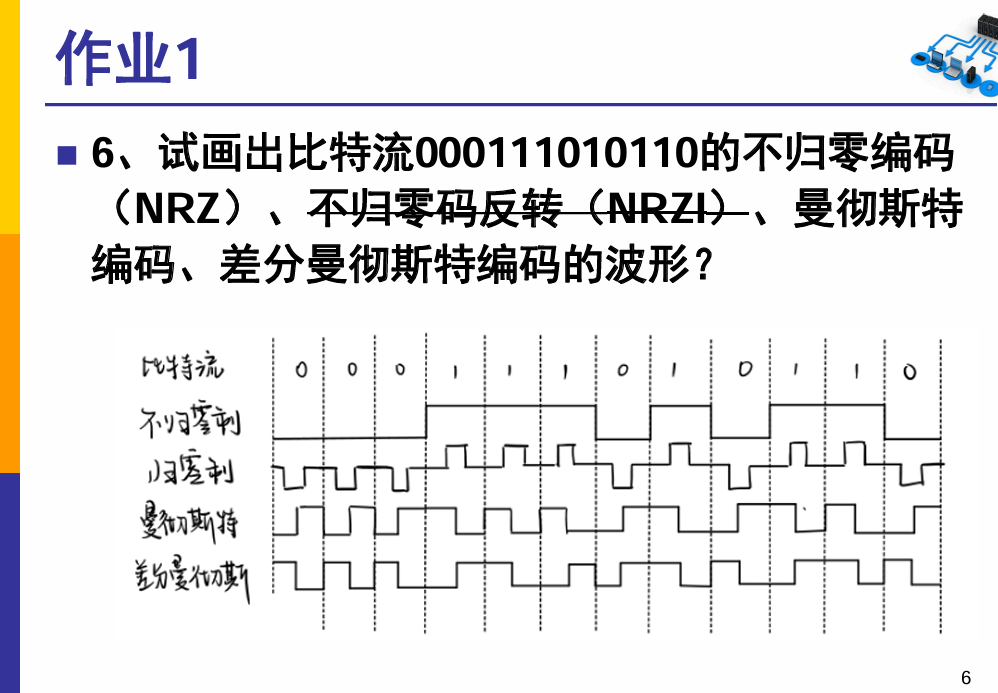 作业1
6、试画出比特流000111010110的不归零编码
（NRZ）、不归零码反转（NRZI）、曼彻斯特
编码、差分曼彻斯特编码的波形？
比特流 0 0 0 1 1 1 0 1 0 1 1 0
不归零制
归零制
曼彻斯特
差分曼彻斯
6